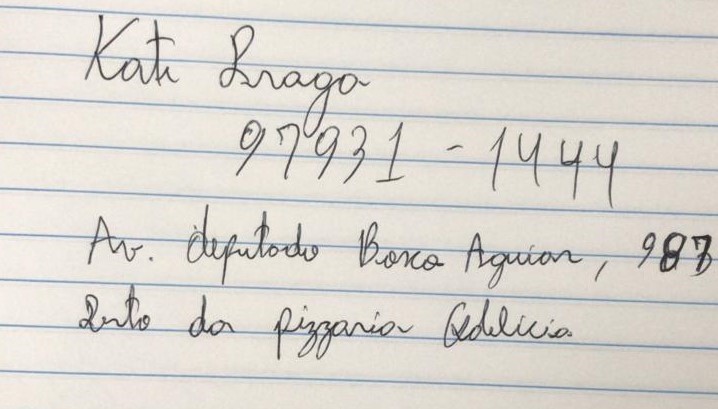 Kati Braga
97931-1444
Av. deputado Bosco Aguiar, 987
Perto da pizzaria Qdelicia